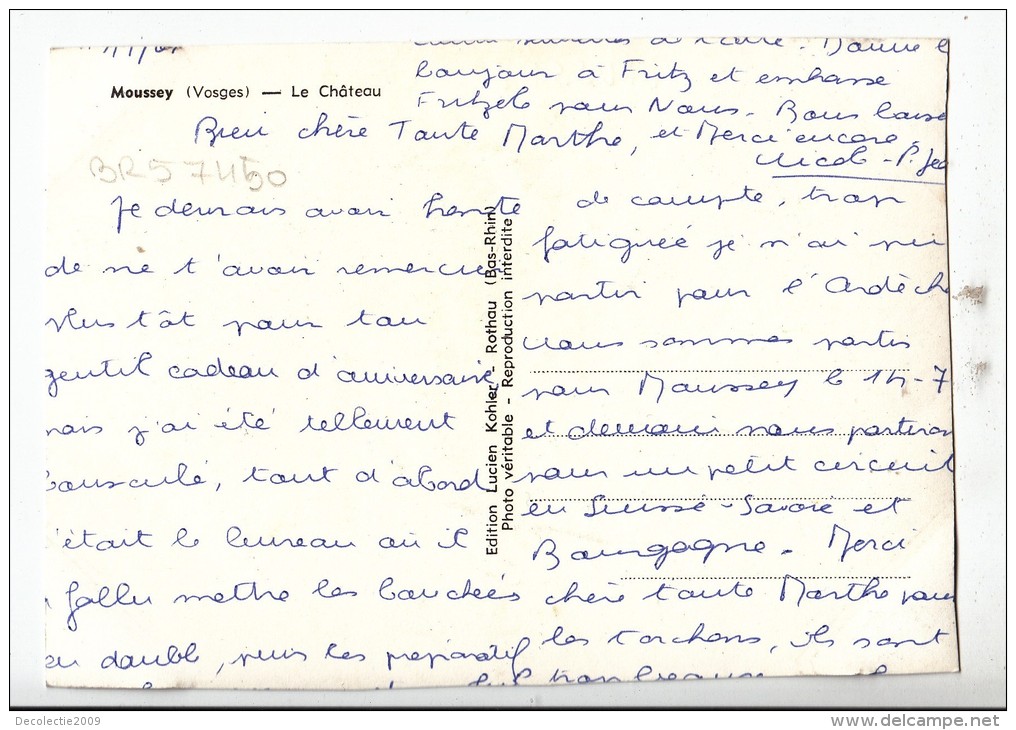 Moussey (Vosges) — Le Château
BR57450
Bien chère Tante Marthe,
Je devrais avoir honte
de ne t'avoir remercié
plus tôt pour ton
gentil cadeau d'anniversaire
mais j'ai été tellement
bousculé, tout d'abord
c'était le bureau où il
fallu mettre les bouchées
en double, puis les préparatifs
Edition Lucien Kohler - Rothau (Bas-Rhin)
Photo véritable - Reproduction interdite
de compte, trop
fatiguée je n'ai pu
partir pour l'Ardèche
nous sommes partis
pour Moussey le 14-7
et demain nous partirons
pour un petit circuit
en Suisse-Savoie et
Bourgogne. Merci
chère tante Marthe pour
les torchons, ils sont
Donne l
bonjour à Fritz et embrasse
pour Nous. Bons baise
et Merci encore.
Nicole - P. Jea
Decolectie2009
www.delcampe.net